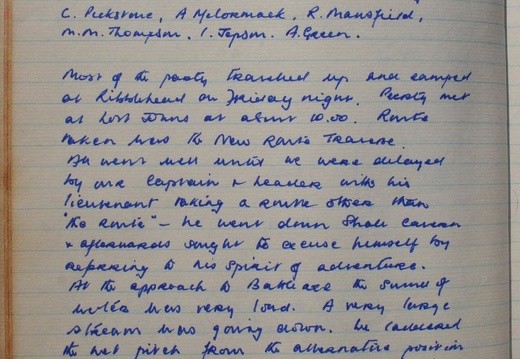 C. Pickstone, A McCormack, R. Mansfield,
M. M. Thompson, I. Jepson. A. Green.
Most of the party travelled up and camped
at Ribblehead on Friday night. Party met
at Lost Johns at about 10.00. Route
taken was the New Roof Traverse.
All went well until we were delayed
by our Captain + leader with his
lieutenant taking a route other than
"the route" – he went down Shale Cavern
+ afterwards sought to excuse himself by
referring to his spirit of adventure.
At the approach to Battleaxe the sound of
water was very loud. A very large
stream was going down. We laddered
the wet pitch from the alternative position